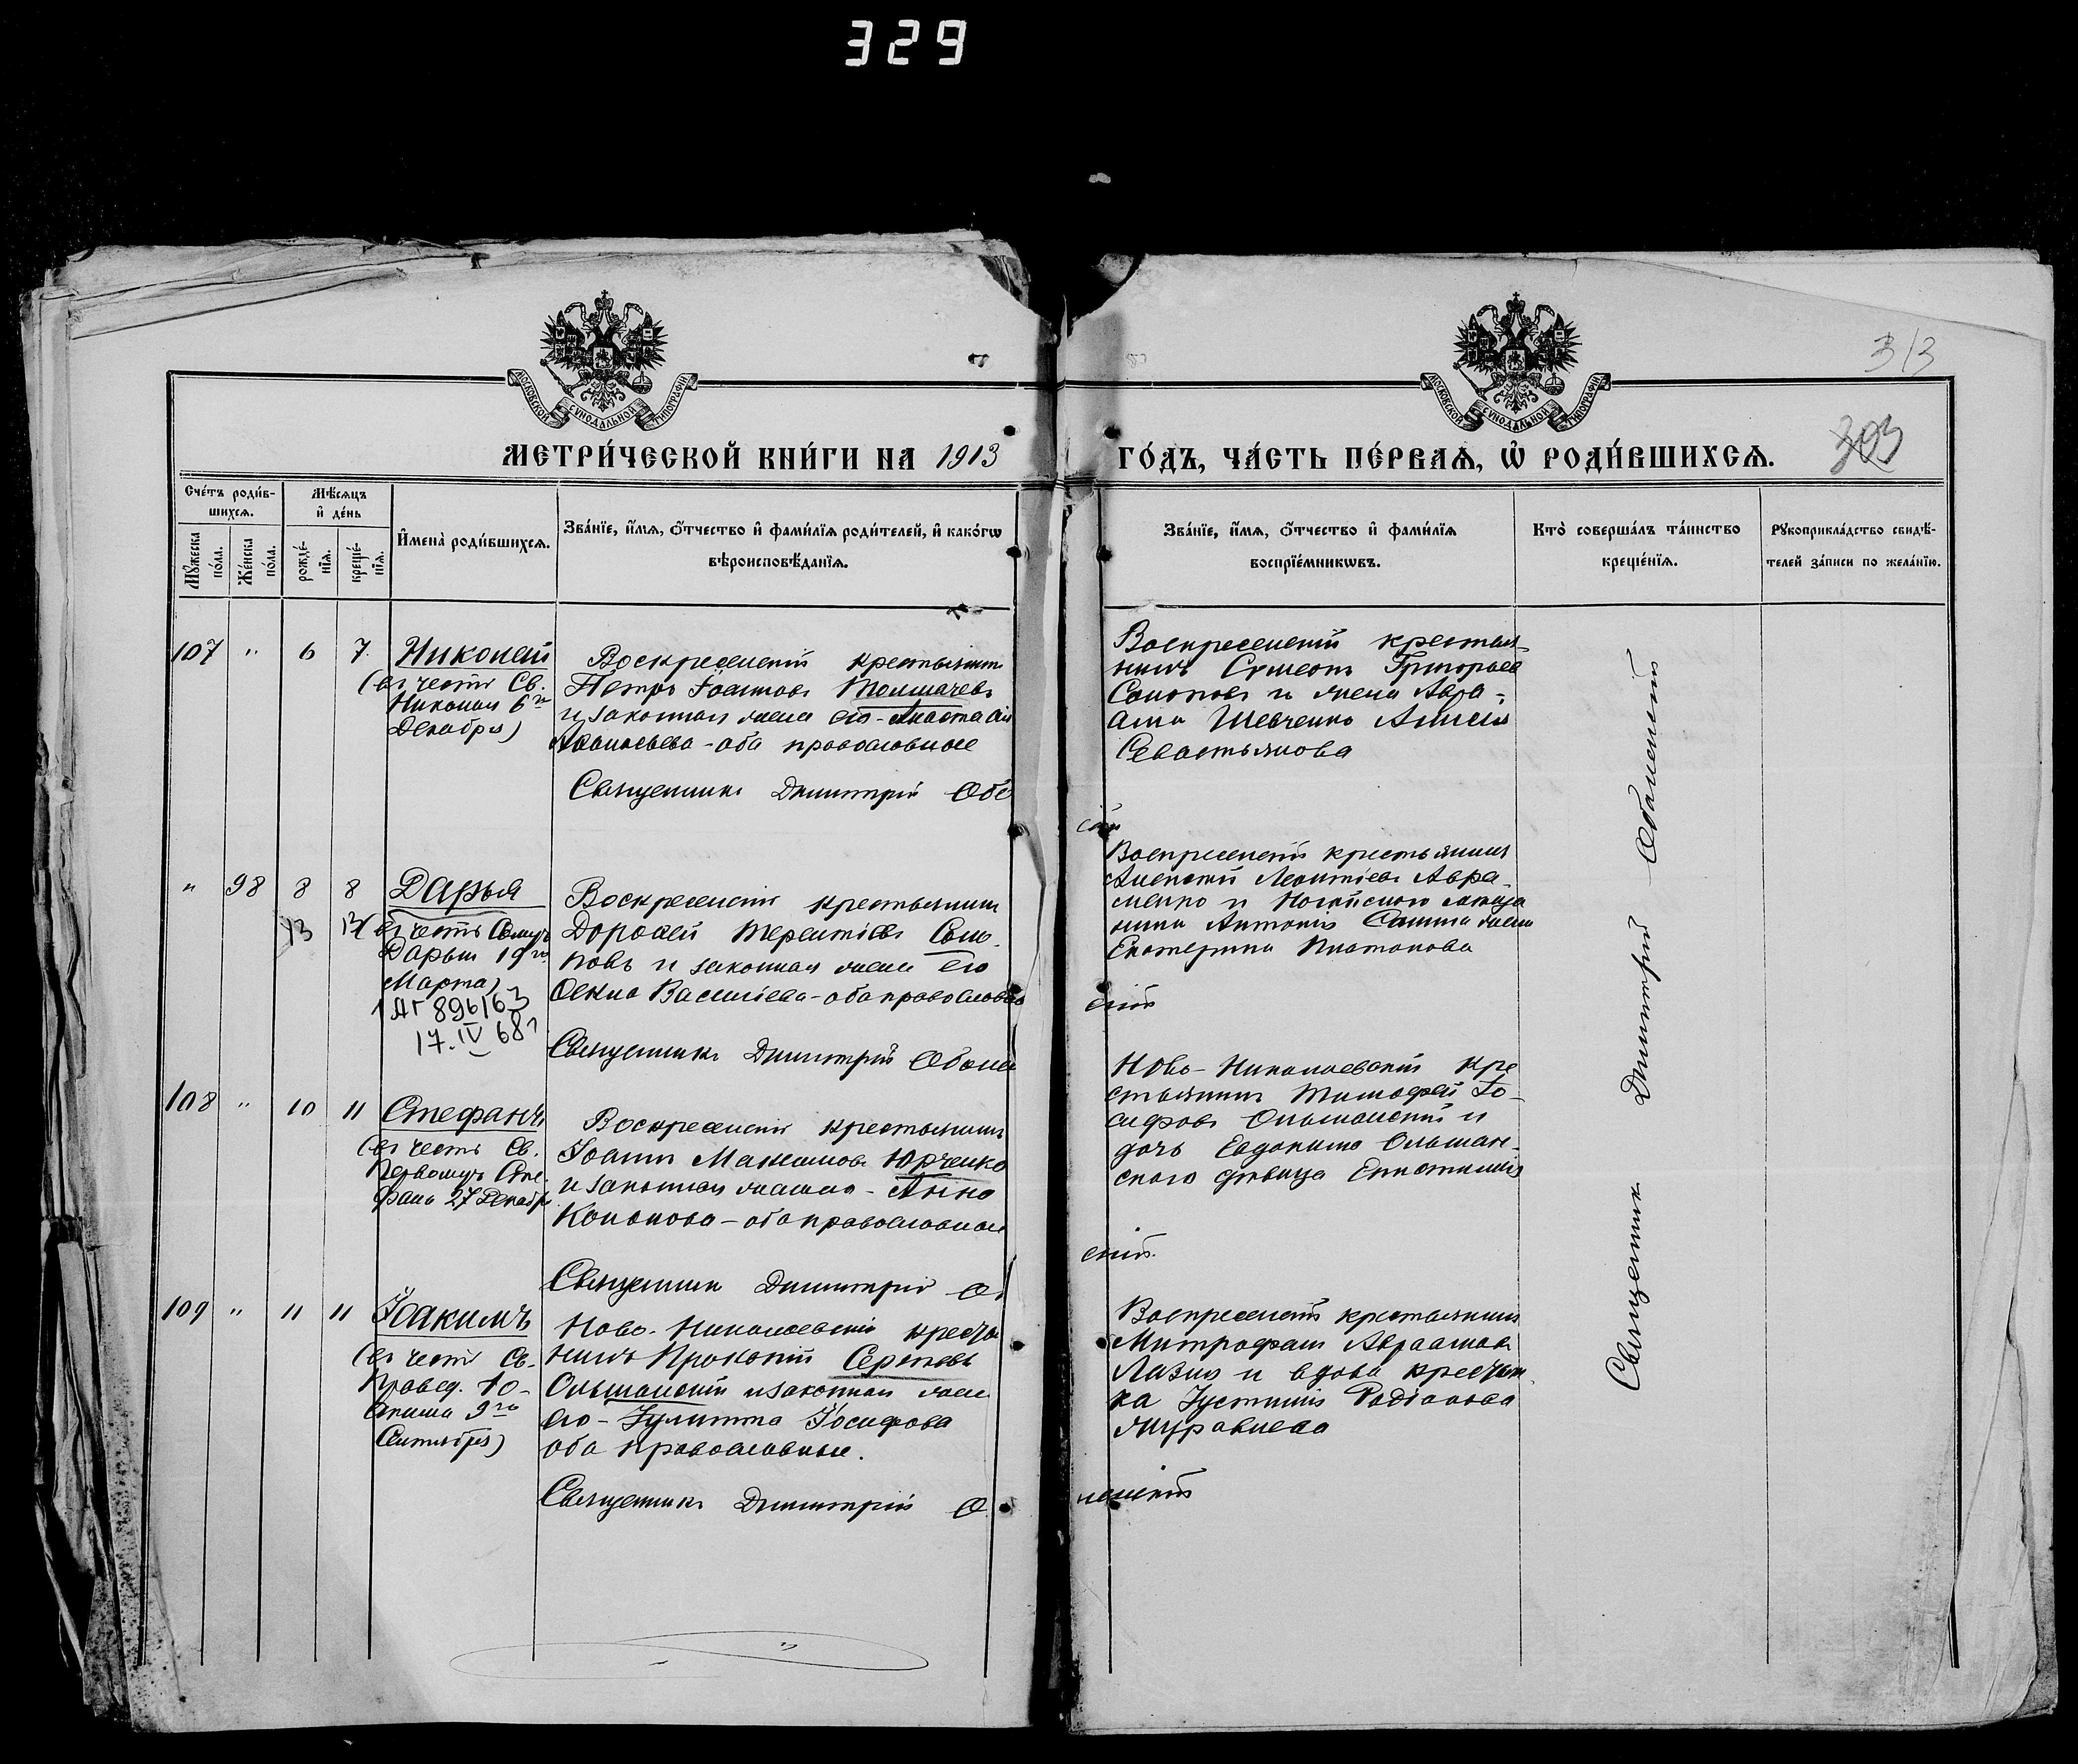 329
МОСКОВСКОЙ СѴНОДАЛЬНОЙ ТИПОГРАФІИ
МОСКОВСКОЙ СѴНОДАЛЬНОЙ ТИПОГРАФІИ
313
303
МЕТРИ́ЧЕСКОЙ КНИ́ГИ НА 1913
ГО́ДЪ, ЧА́СТЬ ПЕ́РВАѦ, Ѡ҆ РОДИ́ВШИХСѦ.
Сче́тъ роди́в-
шихсѧ.
Мѣ́сѧцъ
и҆ де́нь
Мꙋ́жеска
по́ла.
Же́нска
по́ла.
рожде́-
нїѧ.
креще́-
нїѧ.
И҆мена̀ роди́вшихсѧ.
Зва́нїе, и҆́мѧ, ѻ҆́тчество и҆ фами́лїѧ роди́телей, и҆ како́гѡ
вѣроисповѣ́данїѧ.
Зва́нїе, и҆́мѧ, ѻ҆́тчество и҆ фами́лїѧ
воспрїе́мникѡвъ.
Кто̀ соверша́лъ та́инство
креще́нїѧ.
Рꙋкоприкла́дство свидѣ́-
телей за́писи по жела́нїю.
107 " 6 7. Николай
(въ честь Св.
Николая 6го
Декабря)
Воскресенскій крестьянинъ
Петръ Іоанновъ Толмачевъ
и законная жена его - Анастасія
Аѳанасьева - оба православные
Священникъ Димитрій Або
Воскресенскій крестья-
нинъ Сѵмеонъ Григорьевъ
и жена Авра-
ама Шевченко
Севастьянова
" 98 8 8 Дарья
13 13
(въ честь Св. муч.
Дарьи 19го
Марта)
1 АГ 896163
17.IV 68г
Воскресенскій крестьянинъ
Дороѳей Терентіевъ Соко-
ловъ и законная жена его
Ѳекла Васильева - оба православн
Священникъ Димитрій Оболе
Воскресенскій крестьянинъ
Алексѣй Леонтіевъ Авра-
менко и Ногайского мѣща
нина Антонія жена
Екатерина Платонова
скій
108 " 10 11 Стефанъ
(въ честь Св.
Первомуч. Сте-
фана 27 Декабр
Воскресенскій крестьянинъ
Іоаннъ Максимовъ Юрченко
и законная жена его - Анна
Кононова - оба православные
Священникъ Димитрій О
Ново-Николаевскій кре
стьянинъ Тимоѳей Іо-
сифовъ Ольшанскій и
дочь Евдокима Ольшан-
скаго дѣвица
скій.
109 " 11 11 Іоакимъ
(въ честь Св.
Правед. Іо-
акима 9го
Сентября)
Ново-Николаевскій крестья
нинъ Прокопій
Ольшанскій и законная жена
его - Іулитта Іосифова
оба православные.
Священникъ Димитрій О
Воскресенскій крестьянинъ
Митрофанъ Авраамовъ
и вдова крестьян
ка Іустинія Родіонова
Муравлева
ленскій
Священникъ Димитрій Оболенскій